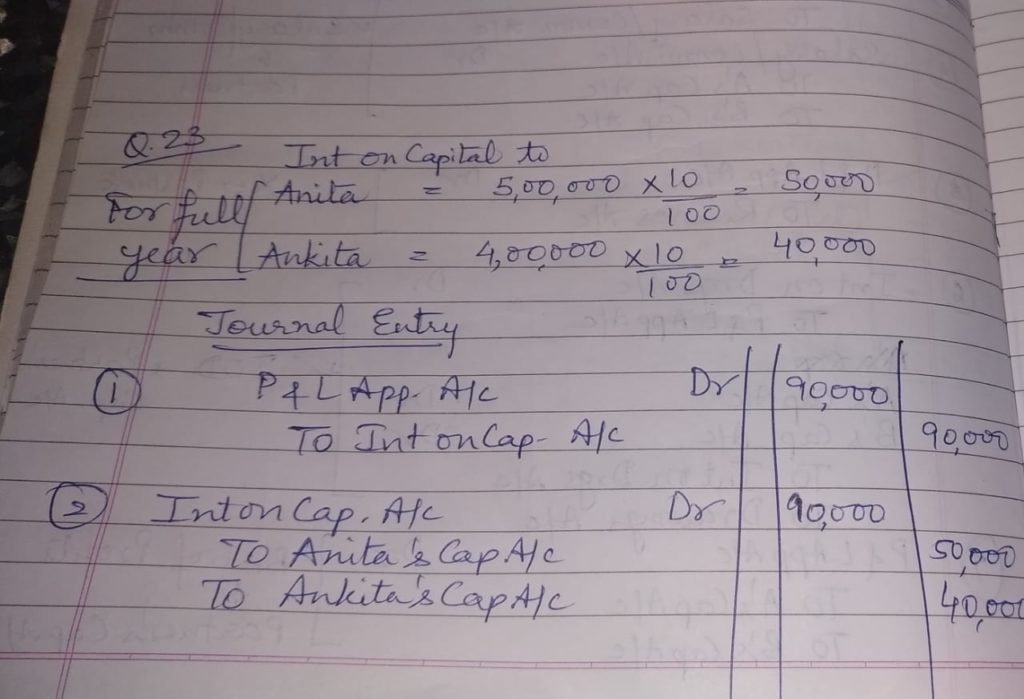 Q.23 Int on Capital to
For full year
Anita = 5,00,000 × 10/100 = 50,000
Ankita = 4,00,000 × 10/100 = 40,000
Journal Entry
① P & L App. A/c Dr 90,000
To Int on Cap- A/c 90,000
② Int on Cap. A/c Dr 90,000
To Anita's Cap A/c 50,000
To Ankita's Cap A/c 40,000